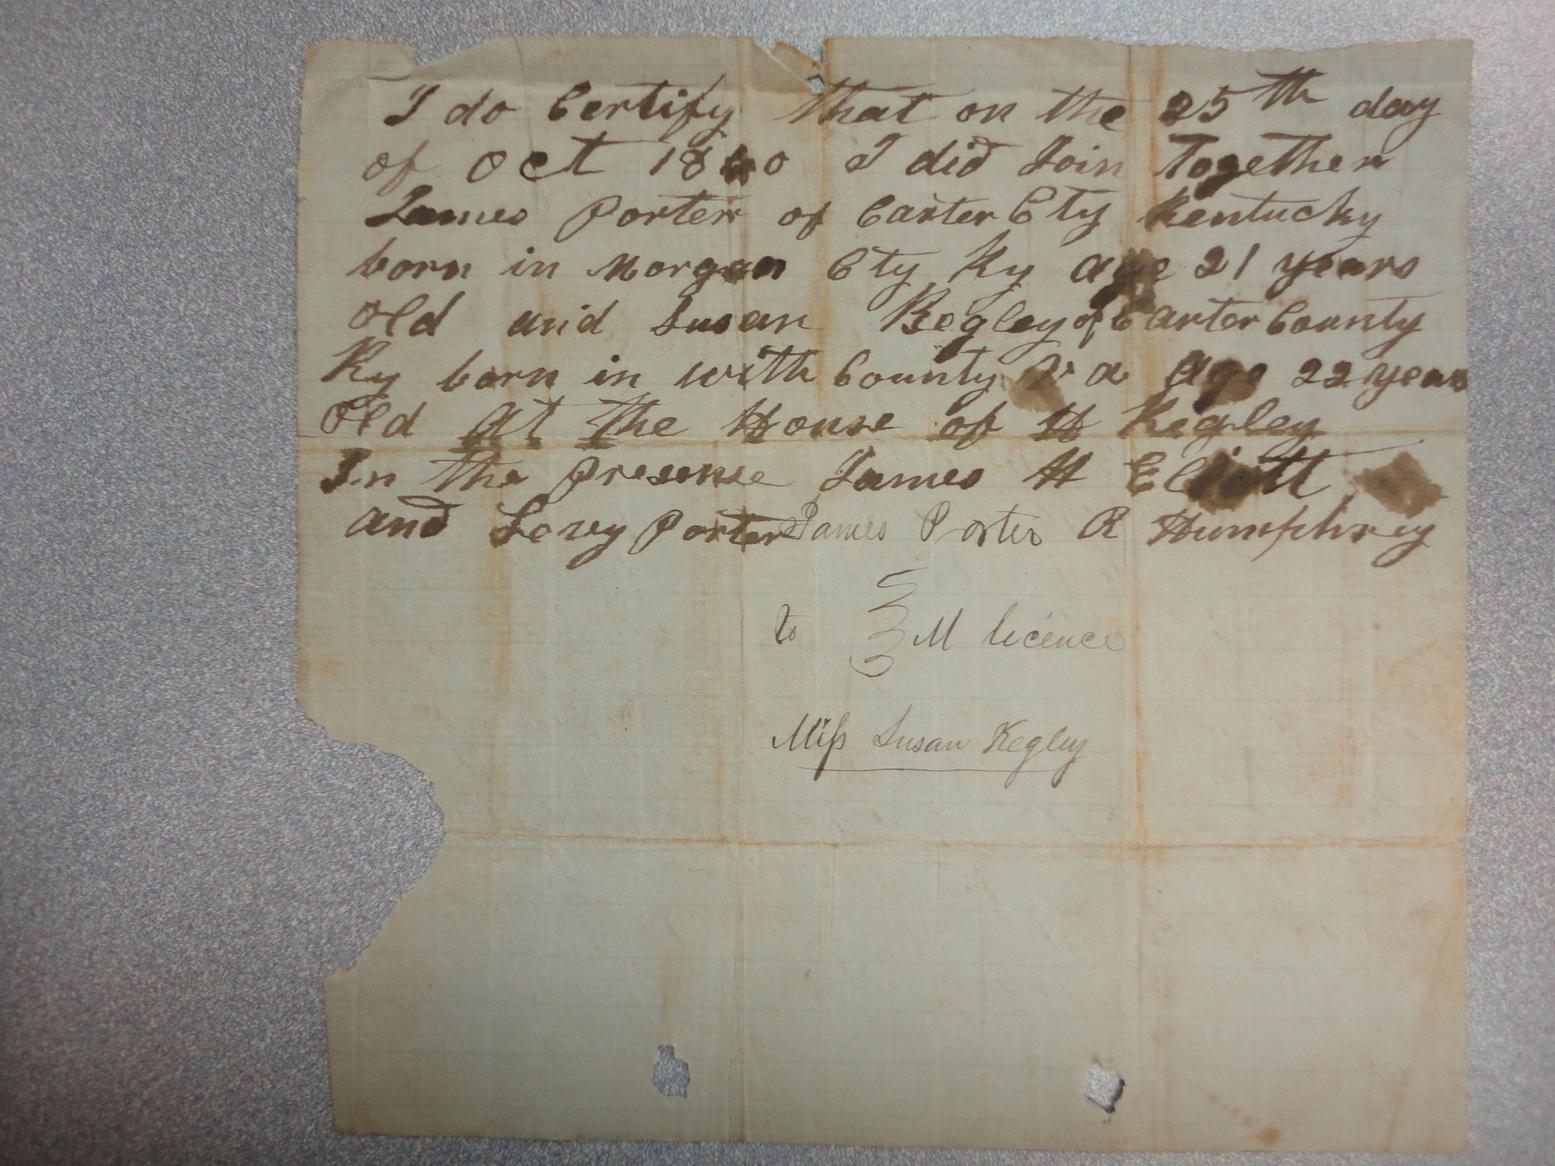 I do Certify that on the 25th day
of Oct 1860 I did Join Together
James Porter of Carter Cty Kentucky
born in Morgan Cty Ky age 21 years
old and Susan Kegley of Carter County
Ky born in with County Va age 22 years
old At the House of H Kegley
In the presense James H Eliott
and Levy Porter James Porter R Humphrey
to M licence
Miss Susan Kegley